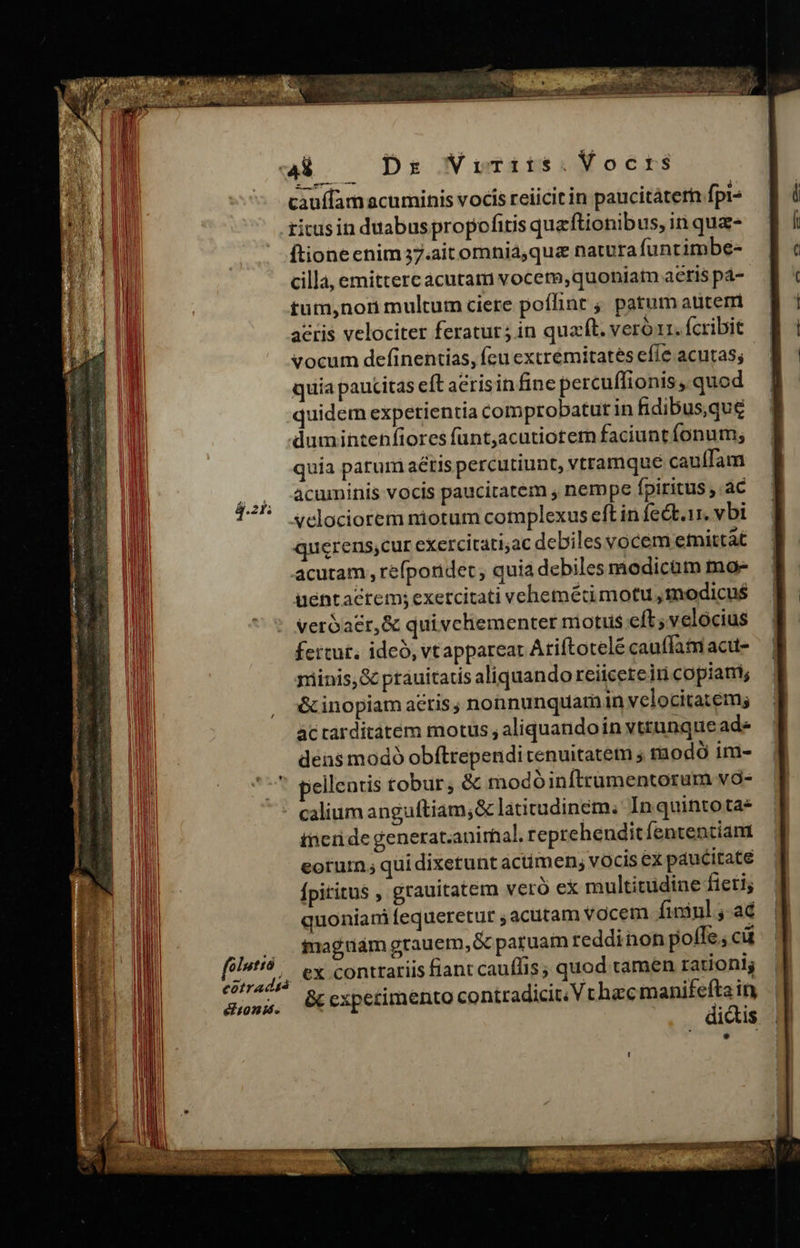 48 De Vitiis Vocis
cauſſam acuminis vocis reiicit in paucitatem ſpi-
ritus in duabus propoſitis quæſtionibus, in quæ-
ſtione enim 37. ait omnia, quæ natura ſunt imbe-
cilla, emittere acutam vocem, quoniam aëris pa-
rum, non multum ciere poſſint ; parum autem
aëris velociter feratur; in quæſt. verò 11. ſcribit
vocum definentias, ſeu extremitates eſſe acutas;
quia paucitas eſt aëris in fine percuſſionis, quod
quidem experientia comprobatur in fidibus, quę
dum intenſiores ſunt, acutiorem faciunt ſonum;
quia parum aëris percutiunt, vtramque cauſſam
acuminis vocis paucitatem, nempe ſpiritus, ac
q.21. velociorem motum complexus eſt in ſect. 11. vbi
querens, cur exercitati, ac debiles vocem emittāt
acutam, reſpondet, quia debiles modicùm mo-
uent aërem; exercitati vehemēti motu, modicus
verò aër, & qui vehementer motus eſt, velocius
fertur. ideò, vt appareat Ariſtotelē cauſſam acu-
minis, & prauitatis aliquando reiicere in copiam,
& inopiam aëris; nonnunquam in velocitatem;
ac tarditatem motus, aliquando in vtrunque ad-
dens modò obſtrependi tenuitatem ; modò im-
pellentis robur, & modò inſtrumentorum vo-
calium anguſtiam, & latitudinem. In quinto ta-
men de generat. animal. reprehendit ſententiam
eorum; qui dixerunt acumen; vocis ex paucitate
ſpiritus , grauitatem verò ex multitudine fieri;
quoniam ſequeretur, acutam vocem ſimul, ac
magnam grauem, & paruam reddi non poſſe; cū
ſolutio ex contrariis fiant cauſſis; quod tamen rationi;
cōtradi- & experimento contradicit. Vt hæc manifeſta in
ctionis. dictis